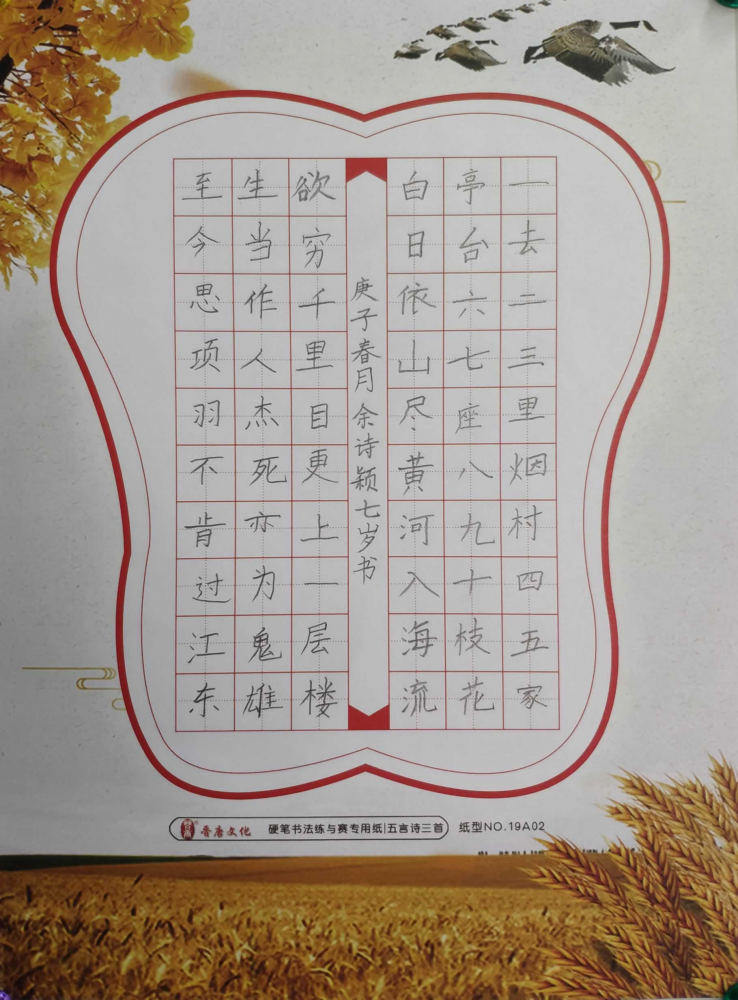 一去二三里烟村四五家
亭台六七座八九十枝花
白日依山尽黄河入海流
庚子春月 余诗颖七岁书
欲穷千里目更上一层楼
生当作人杰死亦为鬼雄
至今思项羽不肯过江东
晋唐文化 硬笔书法练与赛专用纸|五言诗三首 纸型NO.19A02